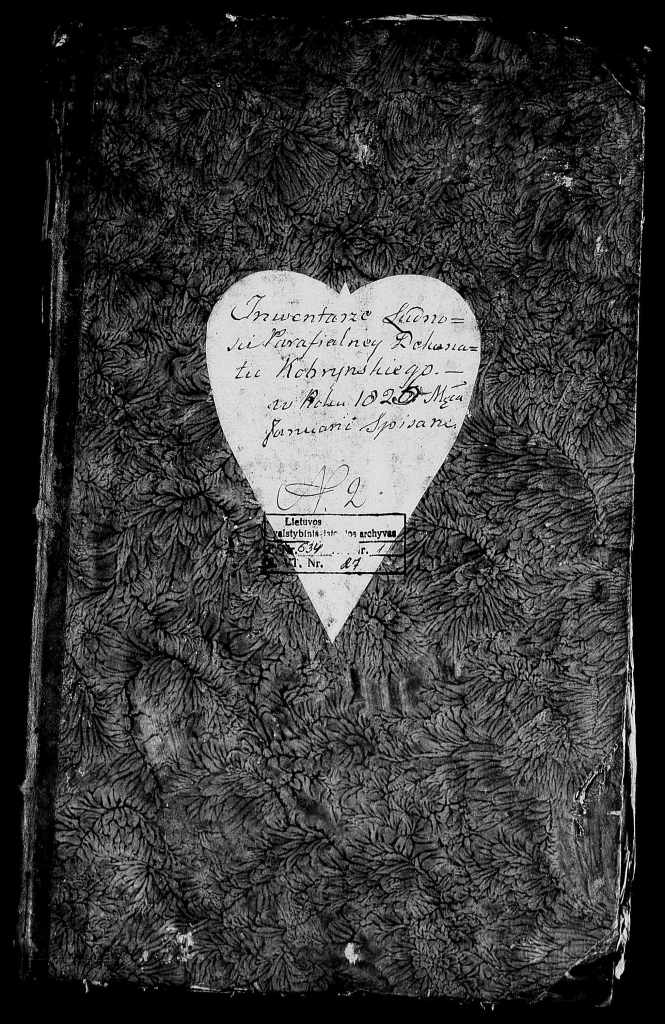 Inwentarze Ludno=
ści Parafialney Dekana=
tu Kobrynskiego. —
w Roku 1825 Mca
Januarii Spisane.
N. 2
Lietuvos
valstybinis istorijos archyvas
Nr. 634 Nr. 1
Nr. 27